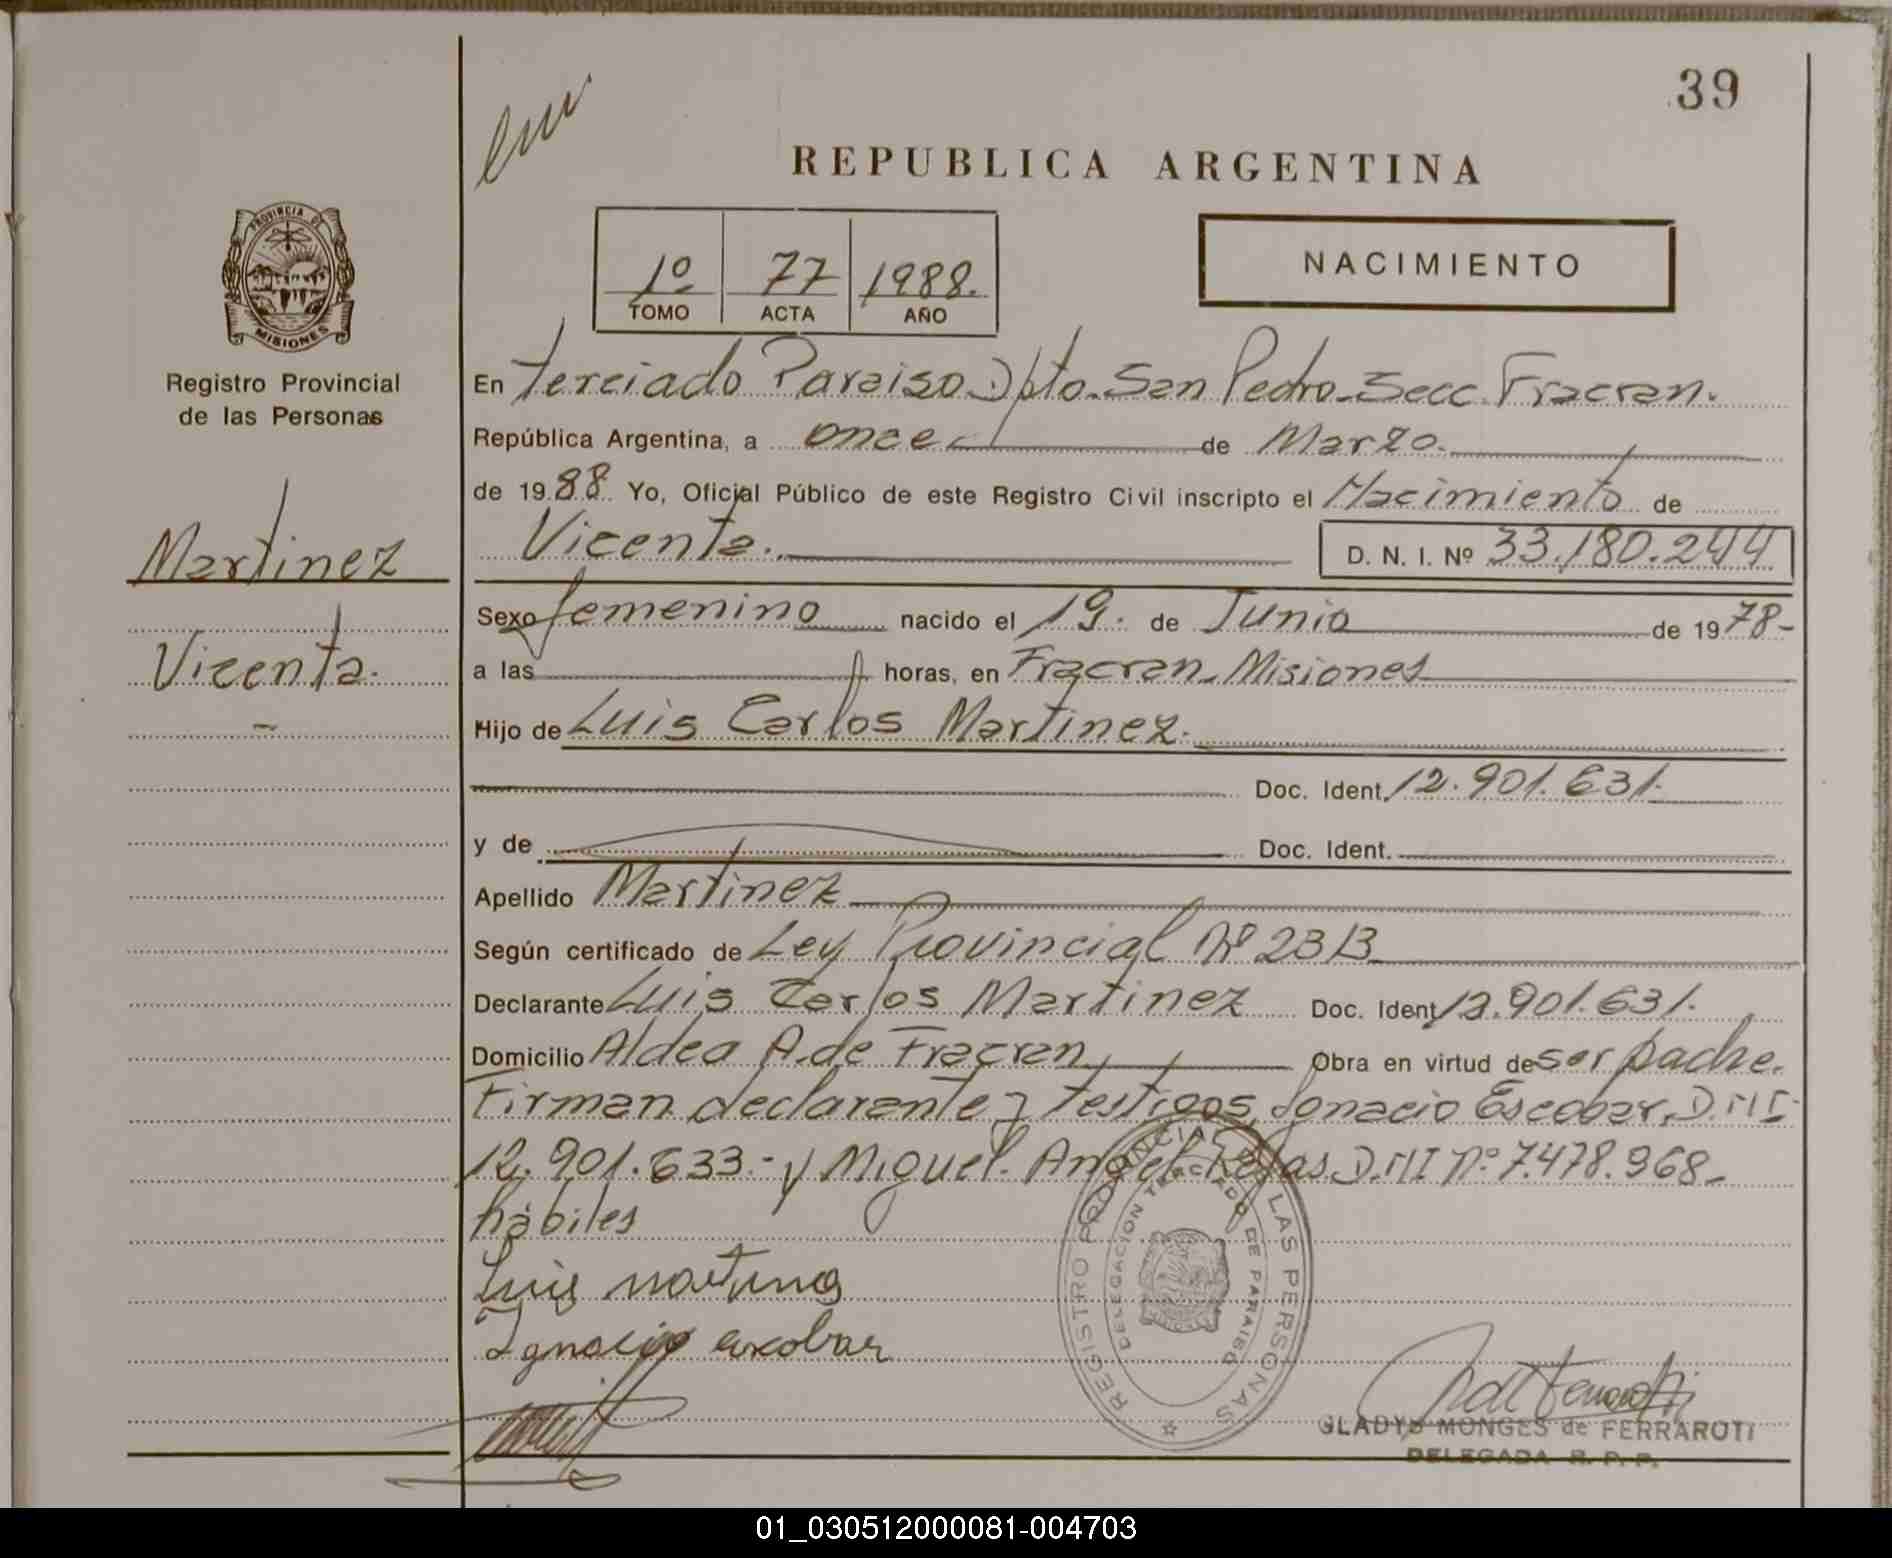 39
REPUBLICA ARGENTINA
PROVINCIA DE
MISIONES
Registro Provincial
de las Personas
Martinez
Vicenta.
1º 77 1988.
TOMO ACTA AÑO
NACIMIENTO
En Terciado Paraiso Dpto. San Pedro - Secc. Fracran.
República Argentina, a once de Marzo.
de 1988 Yo, Oficial Público de este Registro Civil inscripto el Nacimiento de
Vicenta. D. N. I. Nº 33.180.244
Sexo femenino nacido el 19. de Junio de 1978-
a las horas, en Fracran - Misiones
Hijo de Luis Carlos Martinez.
Doc. Ident. 12.901.631.
y de Doc. Ident.
Apellido Martinez
Según certificado de Ley Provincial Nº 2313
Declarante Luis Carlos Martinez Doc. Ident. 12.901.631.
Domicilio Aldea A. de Fracran Obra en virtud de ser padre.
Firman declarante y testigos Ignacio Escobar, D.N.I.
12.901.633.- y Miguel Angel D.N.I Nº 7.478.968-
hábiles
Luis
Ignacio escobar
REGISTRO PROVINCIAL DE LAS PERSONAS
DELEGACION TERCIADO DE PARAISO
GLADYS MONGES de FERRAROTI
DELEGADA R. P. P.
01_030512000081-004703